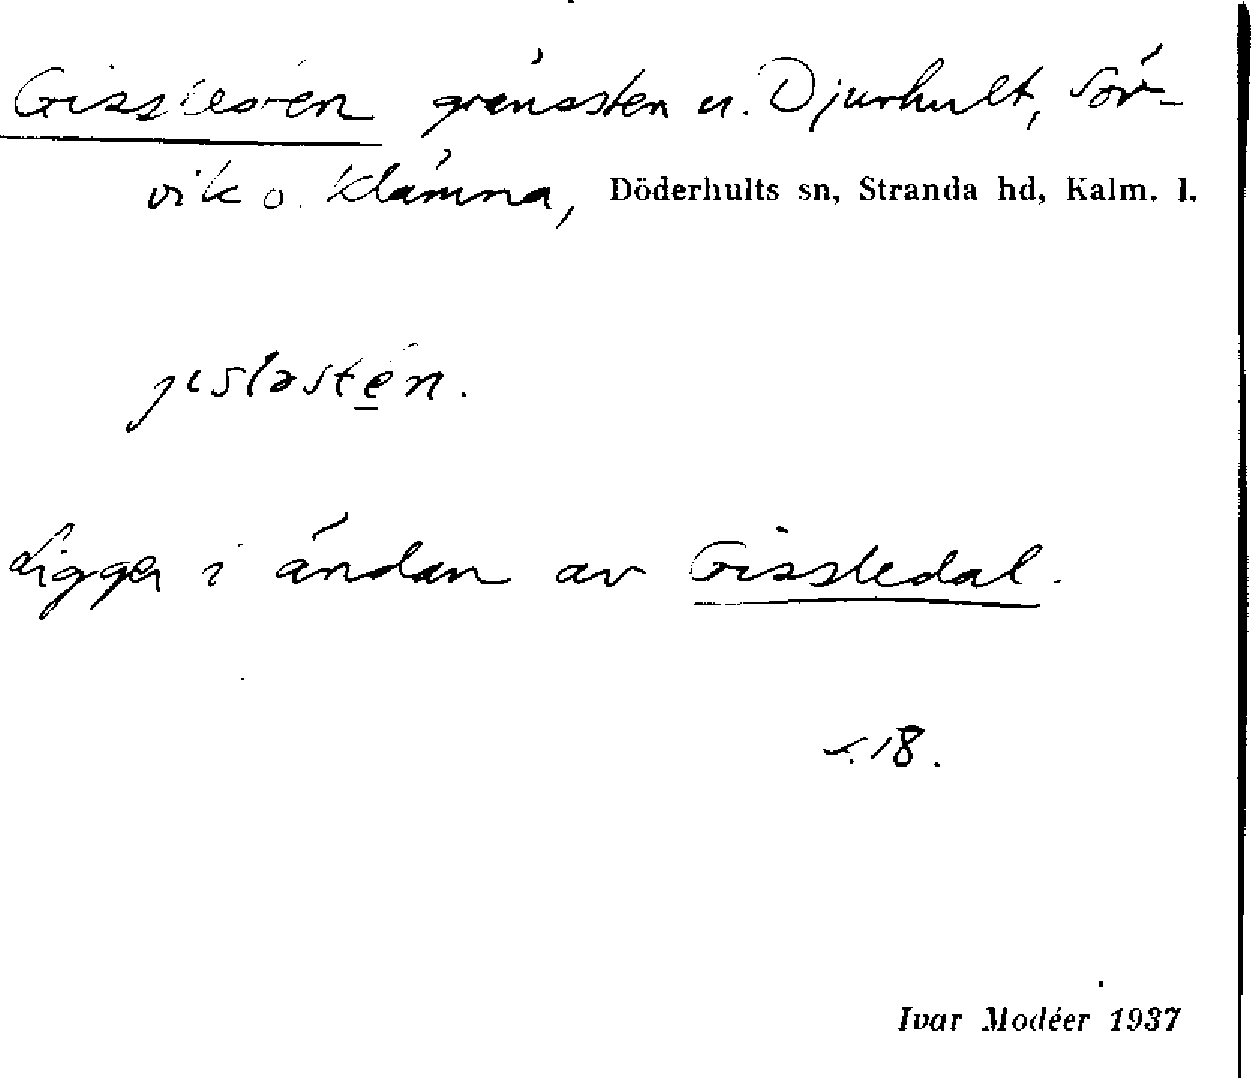 Gisslesten gränssten m. Djurhult, Sör-
vik o. Klämna, Döderhults sn, Stranda hd, Kalm. l.
jislastén.
Ligger i ändan av Gissledal.
s. 18.
Ivar Modéer 1937